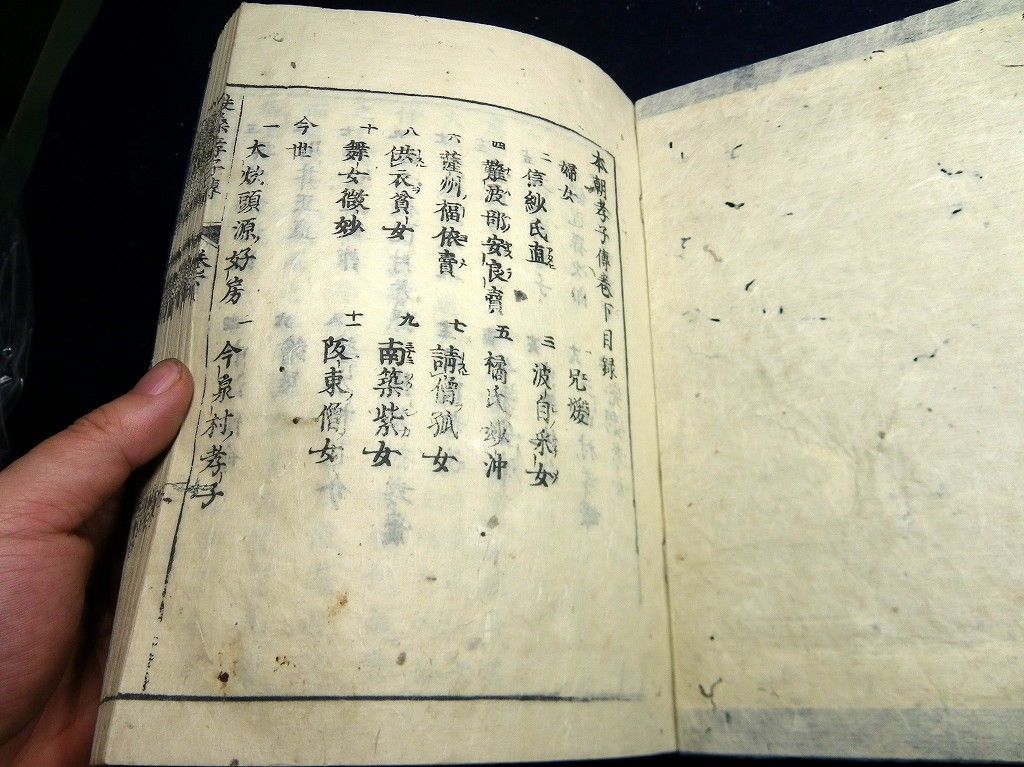 本朝孝子傳卷下目録
婦女 一 兄媛
二 信紗氏直 三 波自采女
四 難波部安良賣 五 橘氏妙冲
六 薩州福依賣 七 請僧孤女
八 供衣貧女 九 南築紫女
十 舞女微妙 十一 阪東僧女
今世
一 大炊頭源好房 二 今泉村孝子